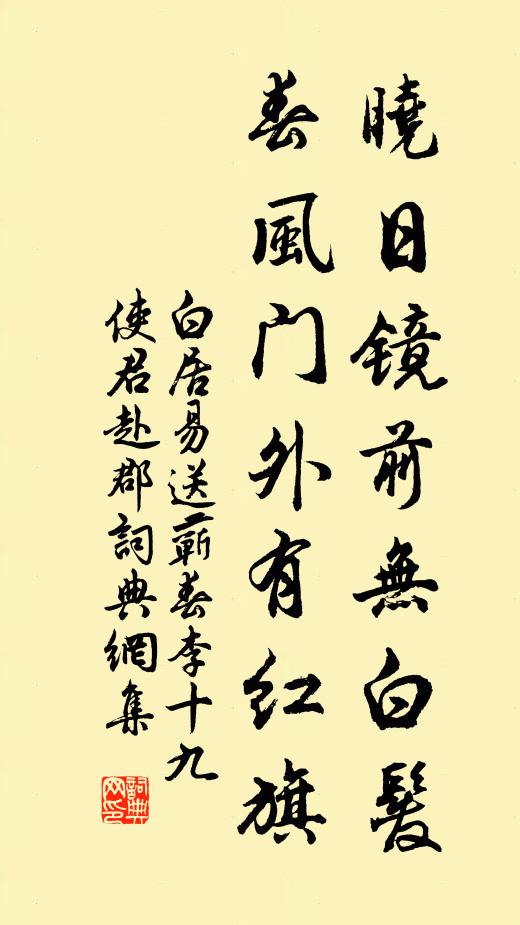 曉日鏡前無白髮
春風門外有紅旗
白居易送蘄春李十九
使君赴郡詞典網集
詞典
网印